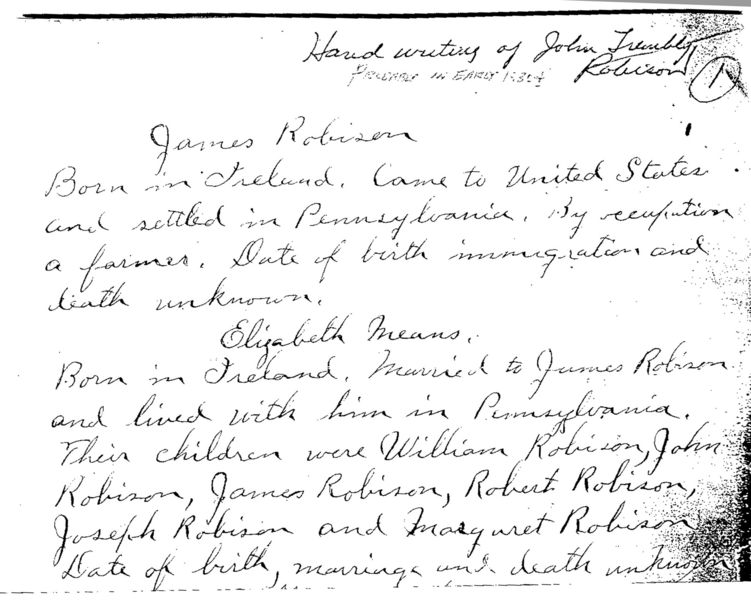 Hand writing of John Trembly
Robison
1
PROBABLY IN EARLY
James Robison
Born in Ireland. Came to United States
and settled in Pennsylvania. By occupation
a farmer. Date of birth immigration and
death unknown.
Elizabeth Means.
Born in Ireland. Married to James Robison
and lived with him in Pennsylvania.
Their children were William Robison, John
Robison, James Robison, Robert Robison,
Joseph Robison and Margaret Robison
Date of birth, marriage and death unknown